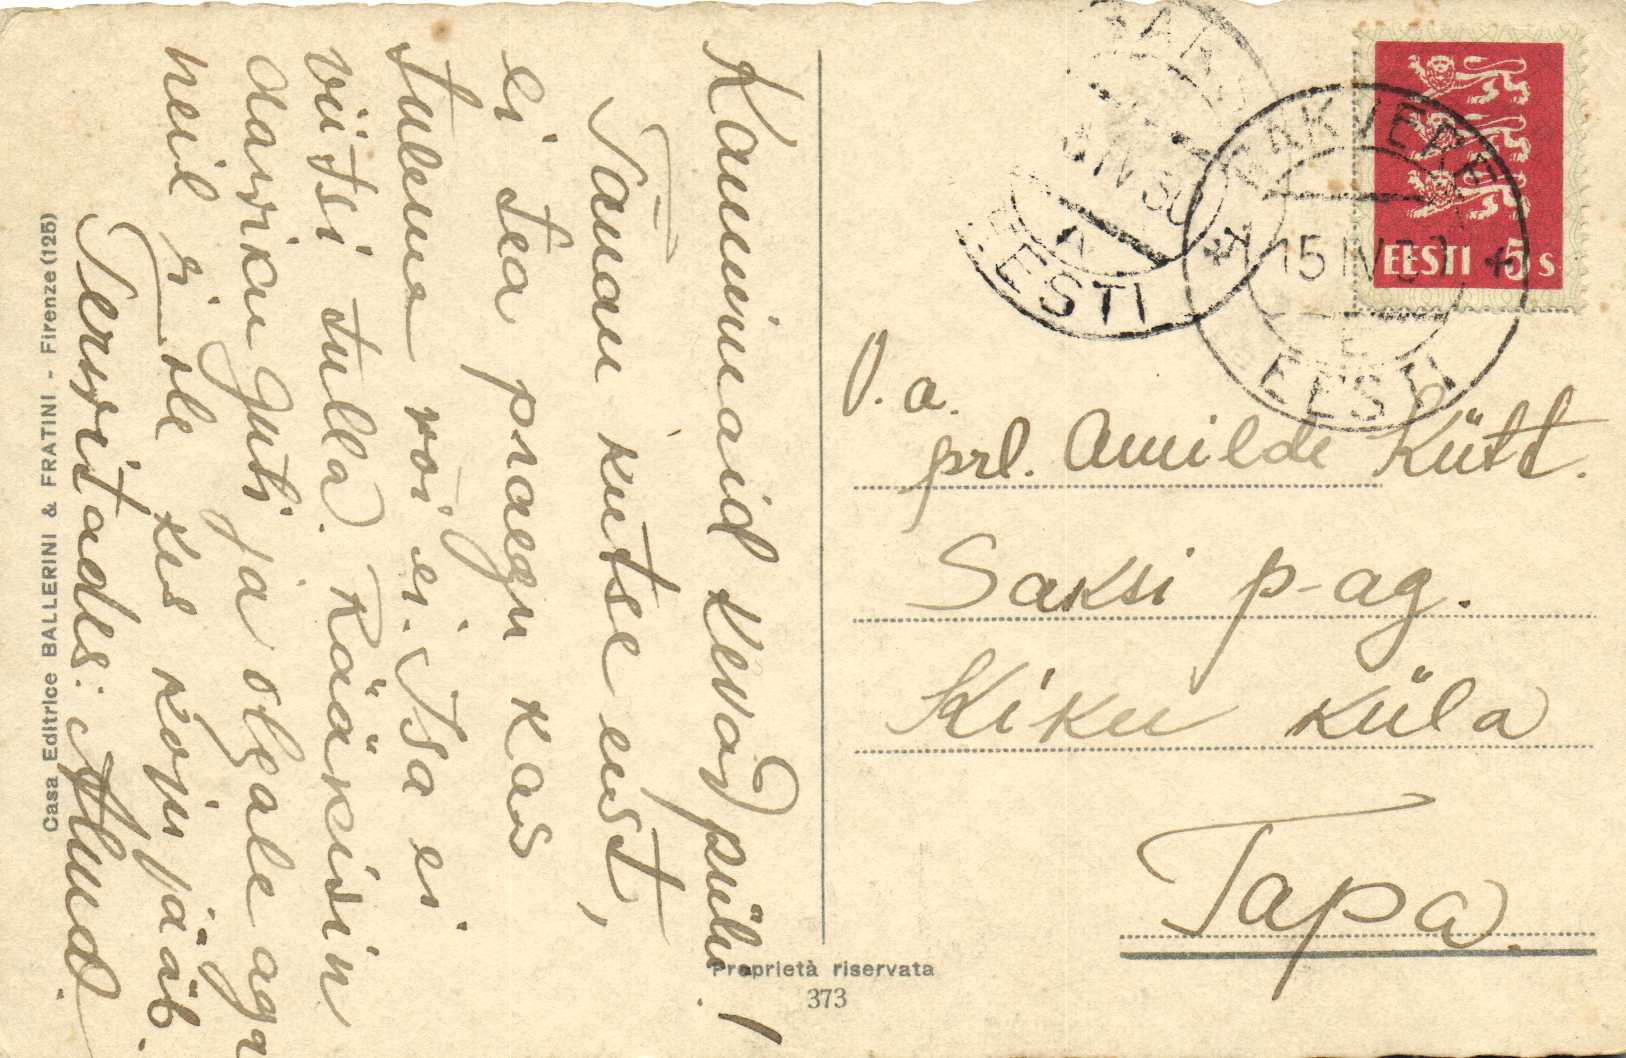 Kaunimaid kevadpühi!
Tänan kutse eest,
ei tea praegu kas
tulema või ei. Isa ei
viitsi tulla. Rääkisin
neil ei ole kes koju jääb.
Tervitades:
Casa Editrice BALLERINI & FRATINI - Firenze (125)
Proprietà riservata
373
RAKVERE
15 IV 30
EESTI
EESTI
EESTI 5 s
O. a.
prl. Amilde Kütt.
Saksi p-ag.
Kiku küla
Tapa.